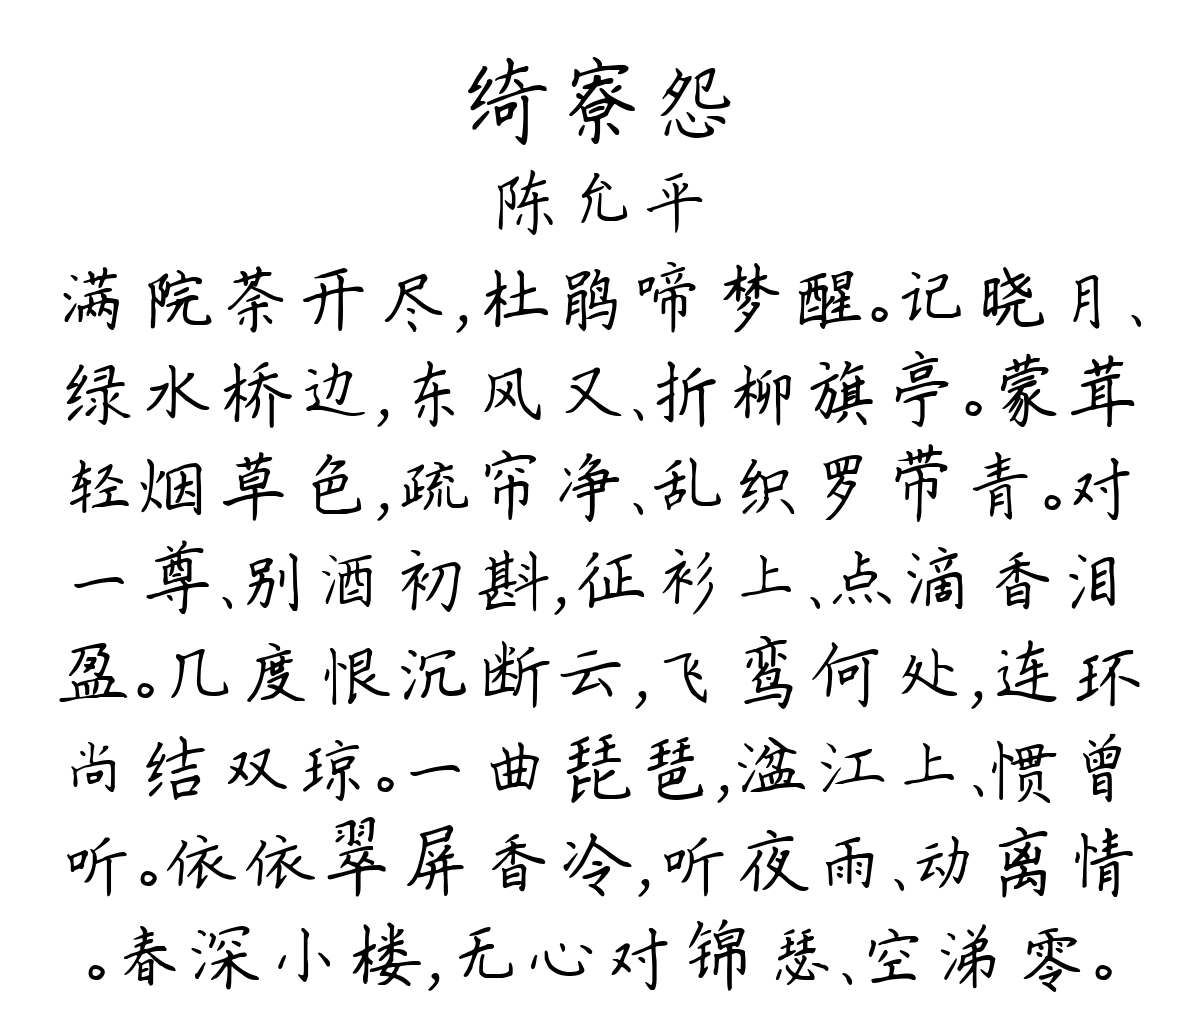 绮寮怨
陈允平
满院荼开尽,杜鹃啼梦醒。记晓月、
绿水桥边,东风又、折柳旗亭。蒙茸
轻烟草色,疏帘净、乱织罗带青。对
一尊、别酒初斟,征衫上、点滴香泪
盈。几度恨沉断云,飞鸾何处,连环
尚结双琼。一曲琵琶,湓江上、惯曾
听。依依翠屏香冷,听夜雨、动离情
。春深小楼,无心对锦瑟、空涕零。